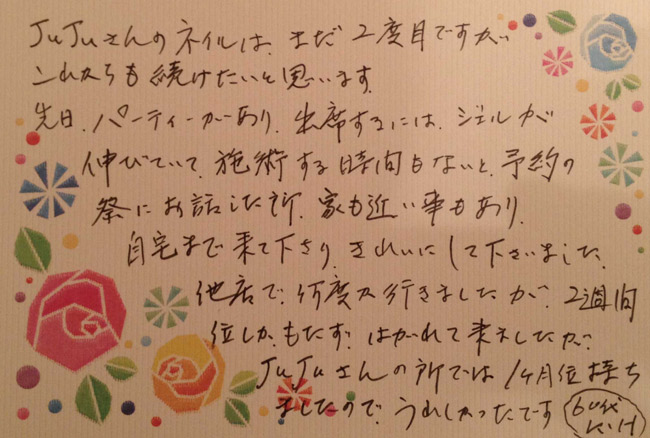 JuJuさんのネイルは、まだ2度目ですが
これからも続けたいと思います。
先日、パーティーがあり、出席するには、ジェルが
伸びていて、施術する時間もないと、予約の
祭にお話した所、家も近い事もあり、
自宅まで来て下さり、きれいにして下さいました。
他店で、何度か行きましたが、2週間
位しかもたず、はがれて来ましたが、
JuJuさんの所では1ヶ月位持ち
ましたので、うれしかったです
60代